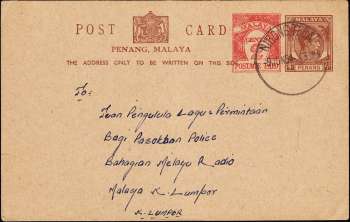 POST CARD
PENANG, MALAYA
THE ADDRESS ONLY TO BE WRITTEN ON THIS SIDE
MALAYA
MALAYA
PENANG
To:
Tuan Pengulula Lagu2 Permintaan
Bagi Pasokban Police
Bahagian Melayu Radio
Malaya K. Lumpor
K. LUMPOR